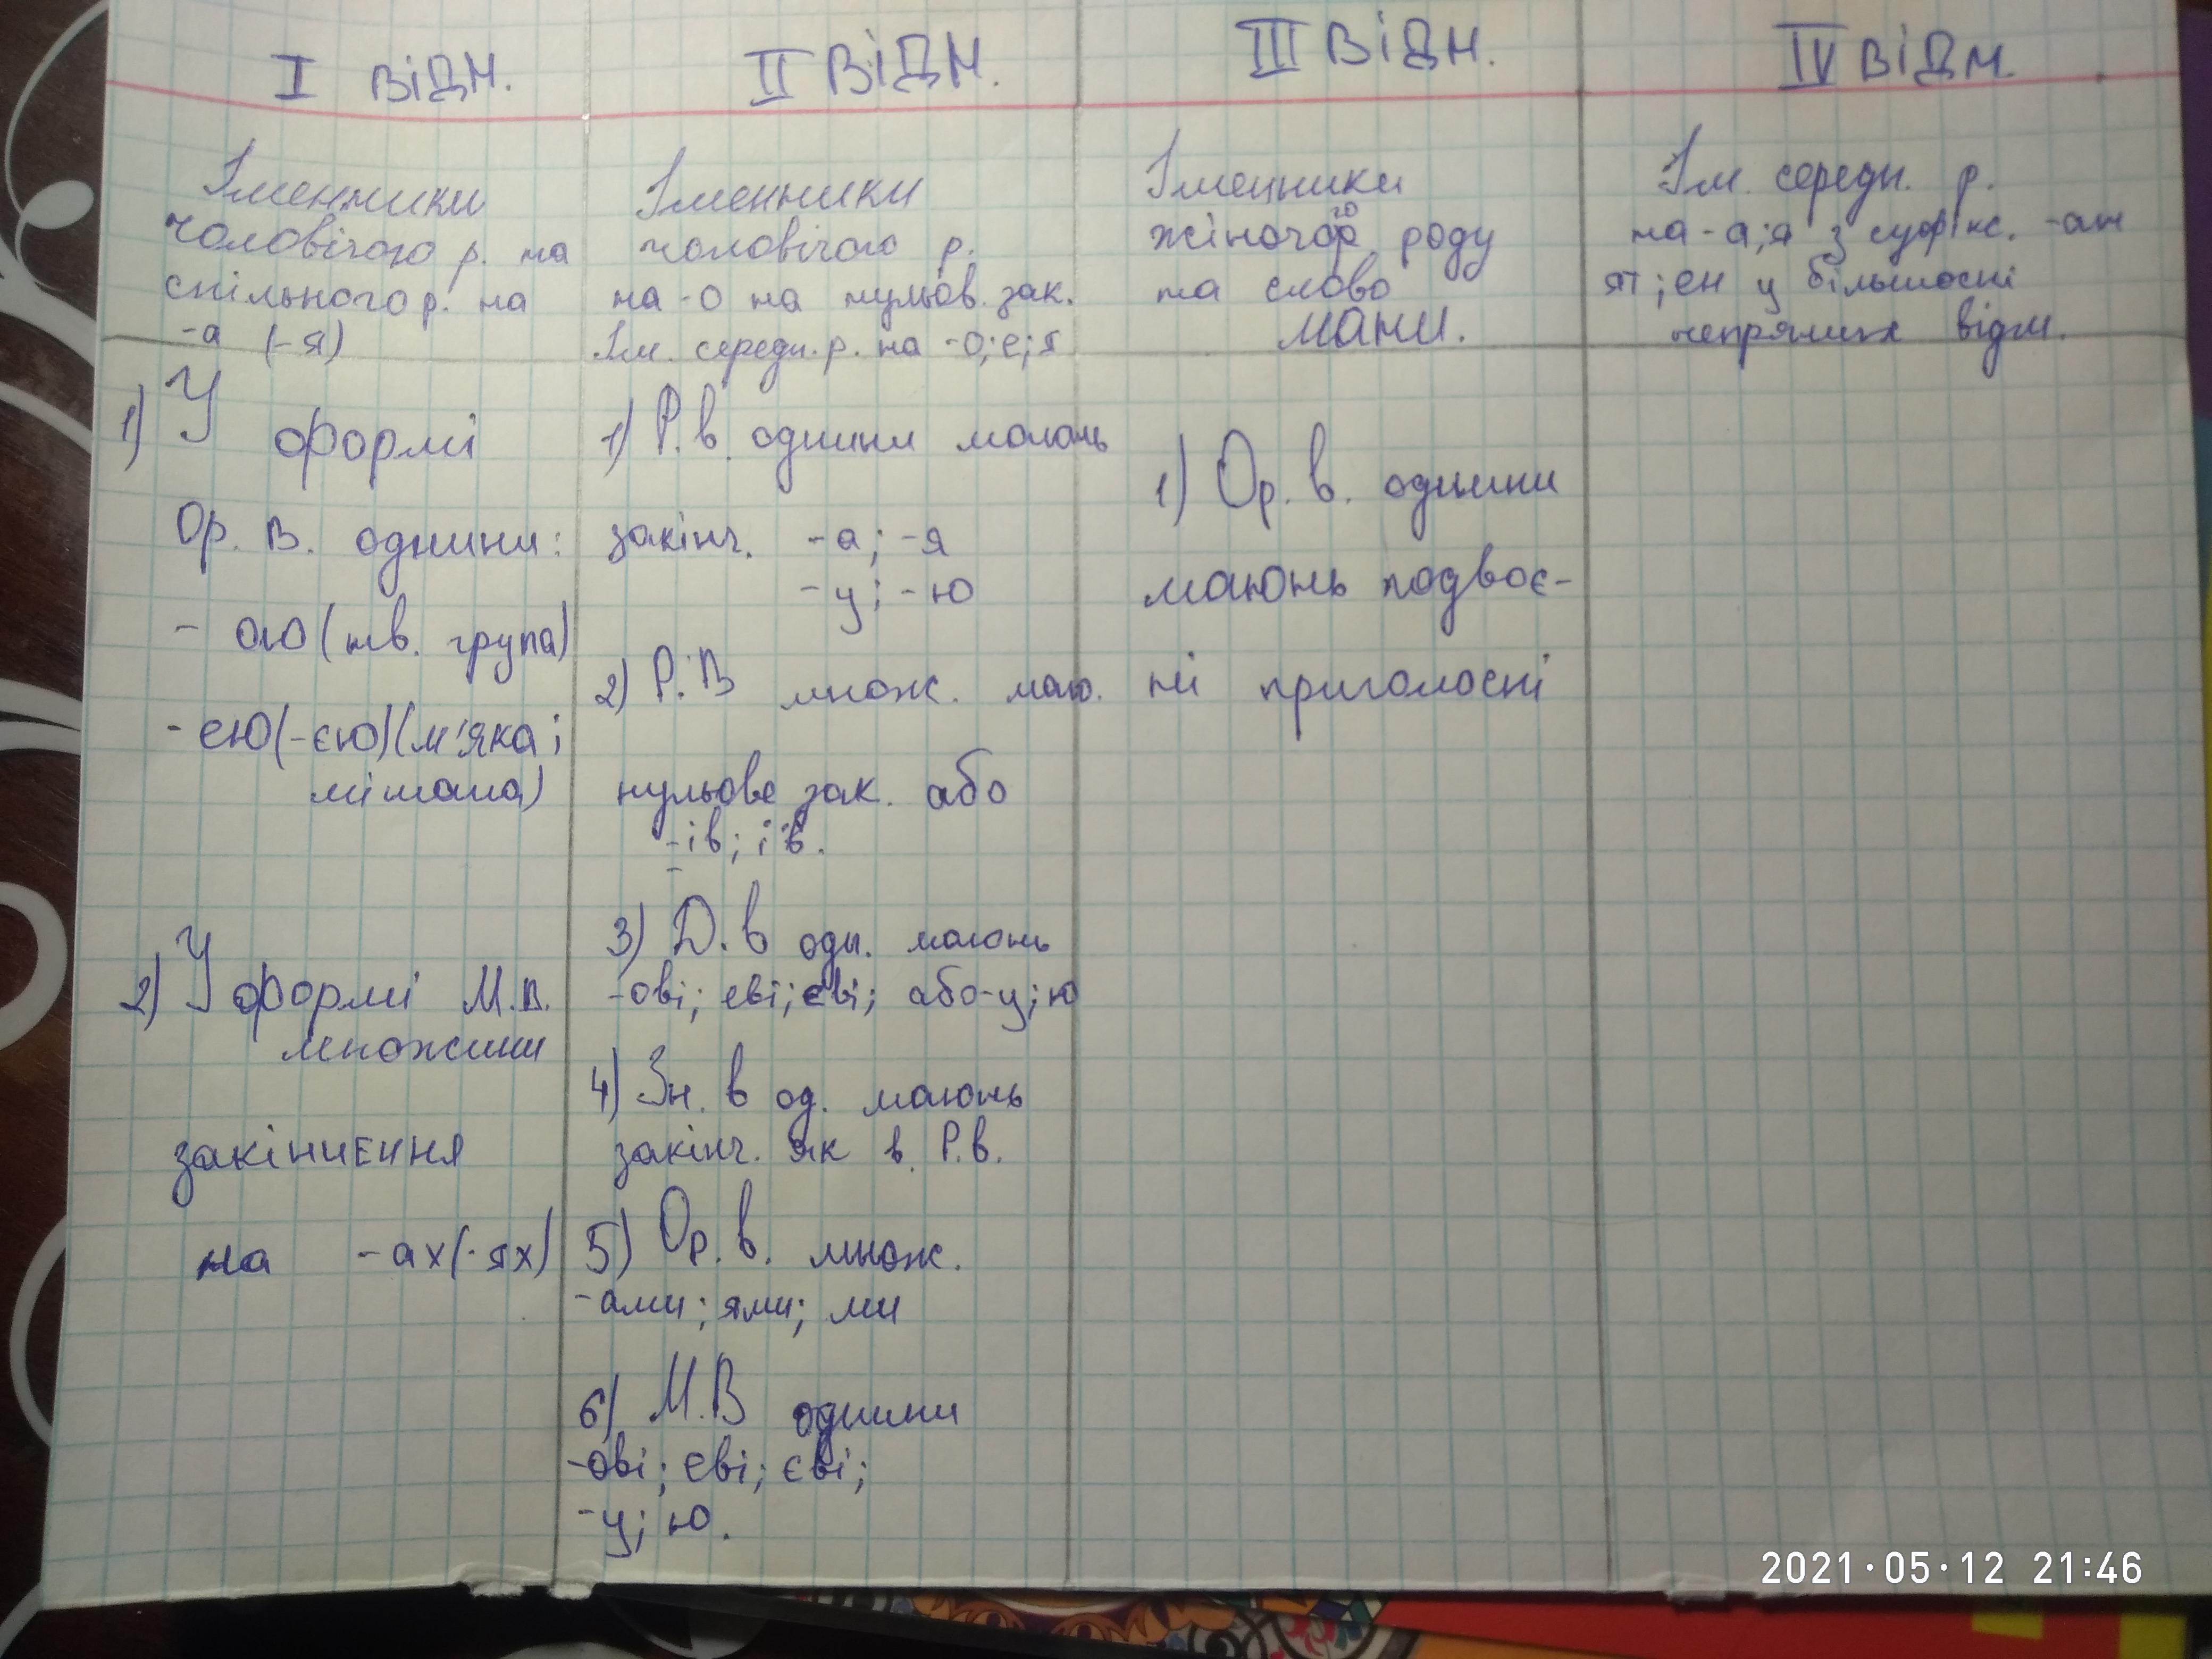 I відм.
Іменники
чоловічого р. та
спільного р. на
-а (-я)
1) У формі
Ор. в. однини:
- ою (тв. група)
- ею (-єю) (м'яка;
мішана)
2) У формі М.в.
множини
закінчення
на -ах (-ях)
II відм.
Іменники
чоловічого р.
на -о та нульов. зак.
Ім. середн. р. на -о; е; я
1) Р.в. однини мають
закінч. -а; -я
-у; -ю
2) Р.В множ. маю.
нульове зак. або
-ів; їв.
3) Д.в одн. мають
-ові; еві; єві; або -у; ю
4) Зн. в од. мають
закінч. як в. Р.в.
5) Ор. в. множ.
-ами; ями; ми
6) М.В однини
-ові; еві; єві;
-у; ю.
III відм.
Іменники
жіночого роду
та слово
мати.
1) Ор. в. однини
мають подвоє-
ні приголосні
IV відм.
Ім. середн. р.
на -а; я з суфікс. -ат
ят; ен у більшості
непрямих відм.
2021·05·12 21:46